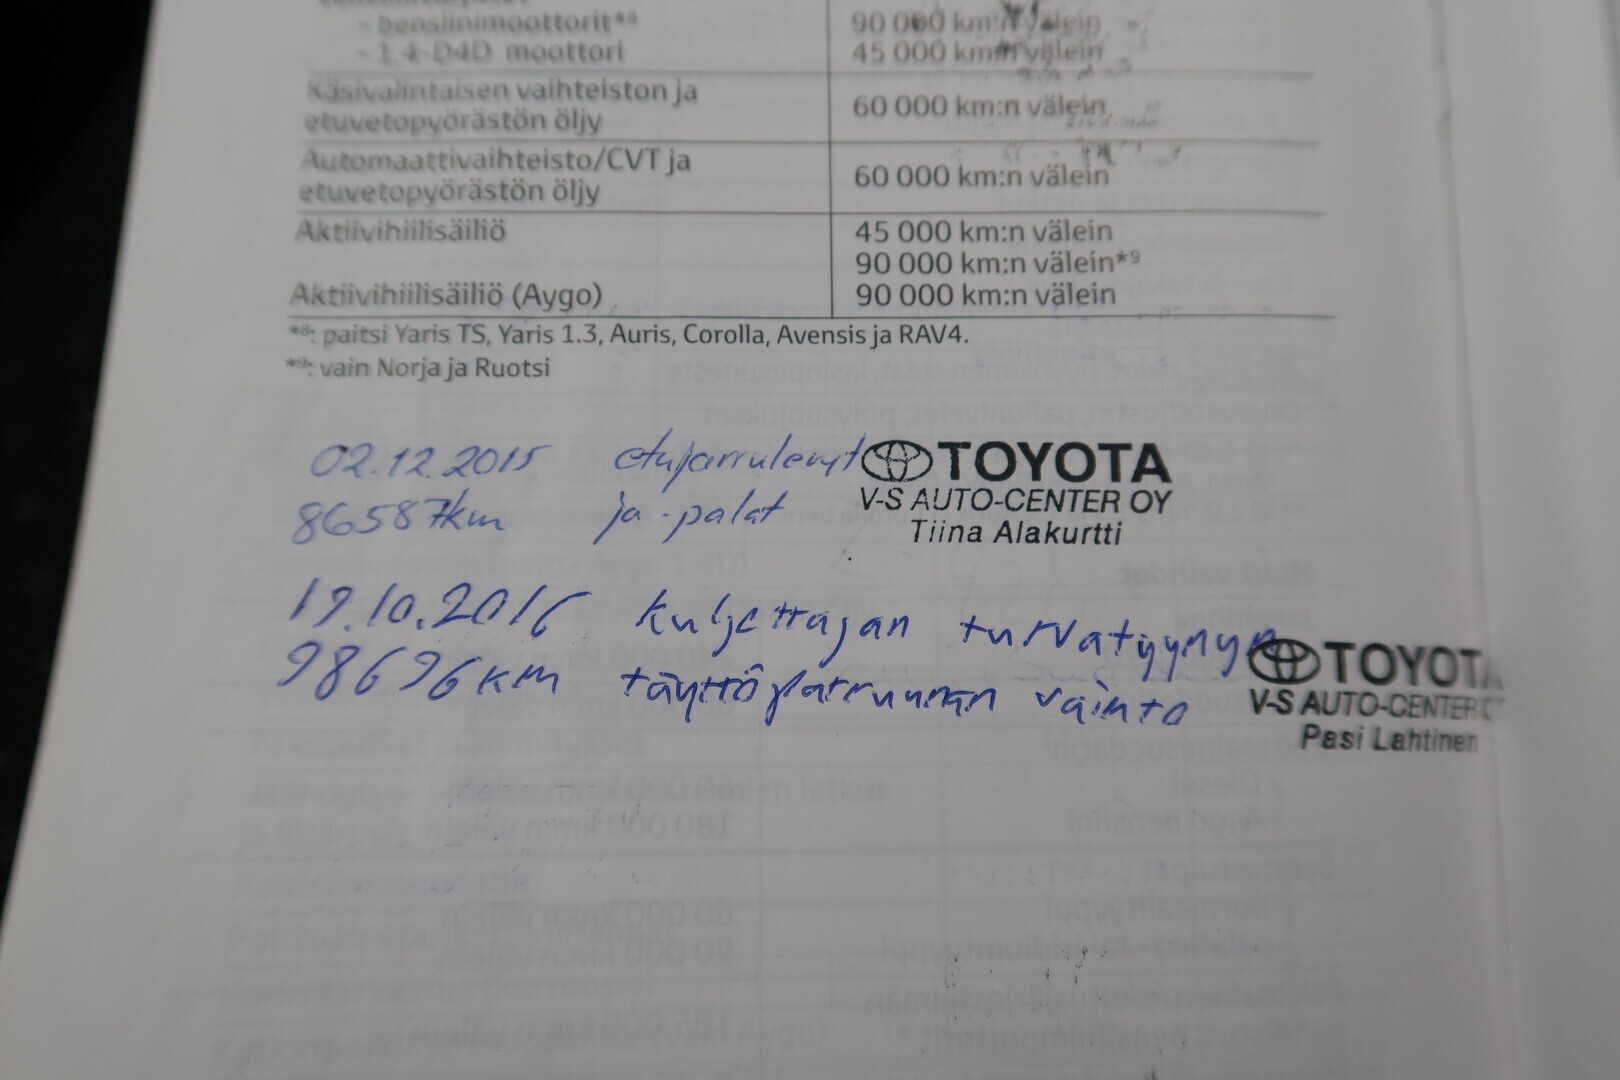 - bensiinimoottorit*8 90 000 km:n välein
- 1.4-D4D moottori 45 000 km:n välein
Käsivalintaisen vaihteiston ja
etuvetopyörästön öljy 60 000 km:n välein
Automaattivaihteisto/CVT ja
etuvetopyörästön öljy 60 000 km:n välein
Aktiivihiilisäiliö 45 000 km:n välein
90 000 km:n välein*9
Aktiivihiilisäiliö (Aygo) 90 000 km:n välein
*8: paitsi Yaris TS, Yaris 1.3, Auris, Corolla, Avensis ja RAV4.
*9: vain Norja ja Ruotsi
02.12.2015 etujarrulevyt TOYOTA
86587km ja -palat V-S AUTO-CENTER OY
Tiina Alakurtti
19.10.2016 kuljettajan turvatyynyn TOYOTA
98696km täyttöpatruunan vaihto V-S AUTO-CENTER
Pasi Lahtinen